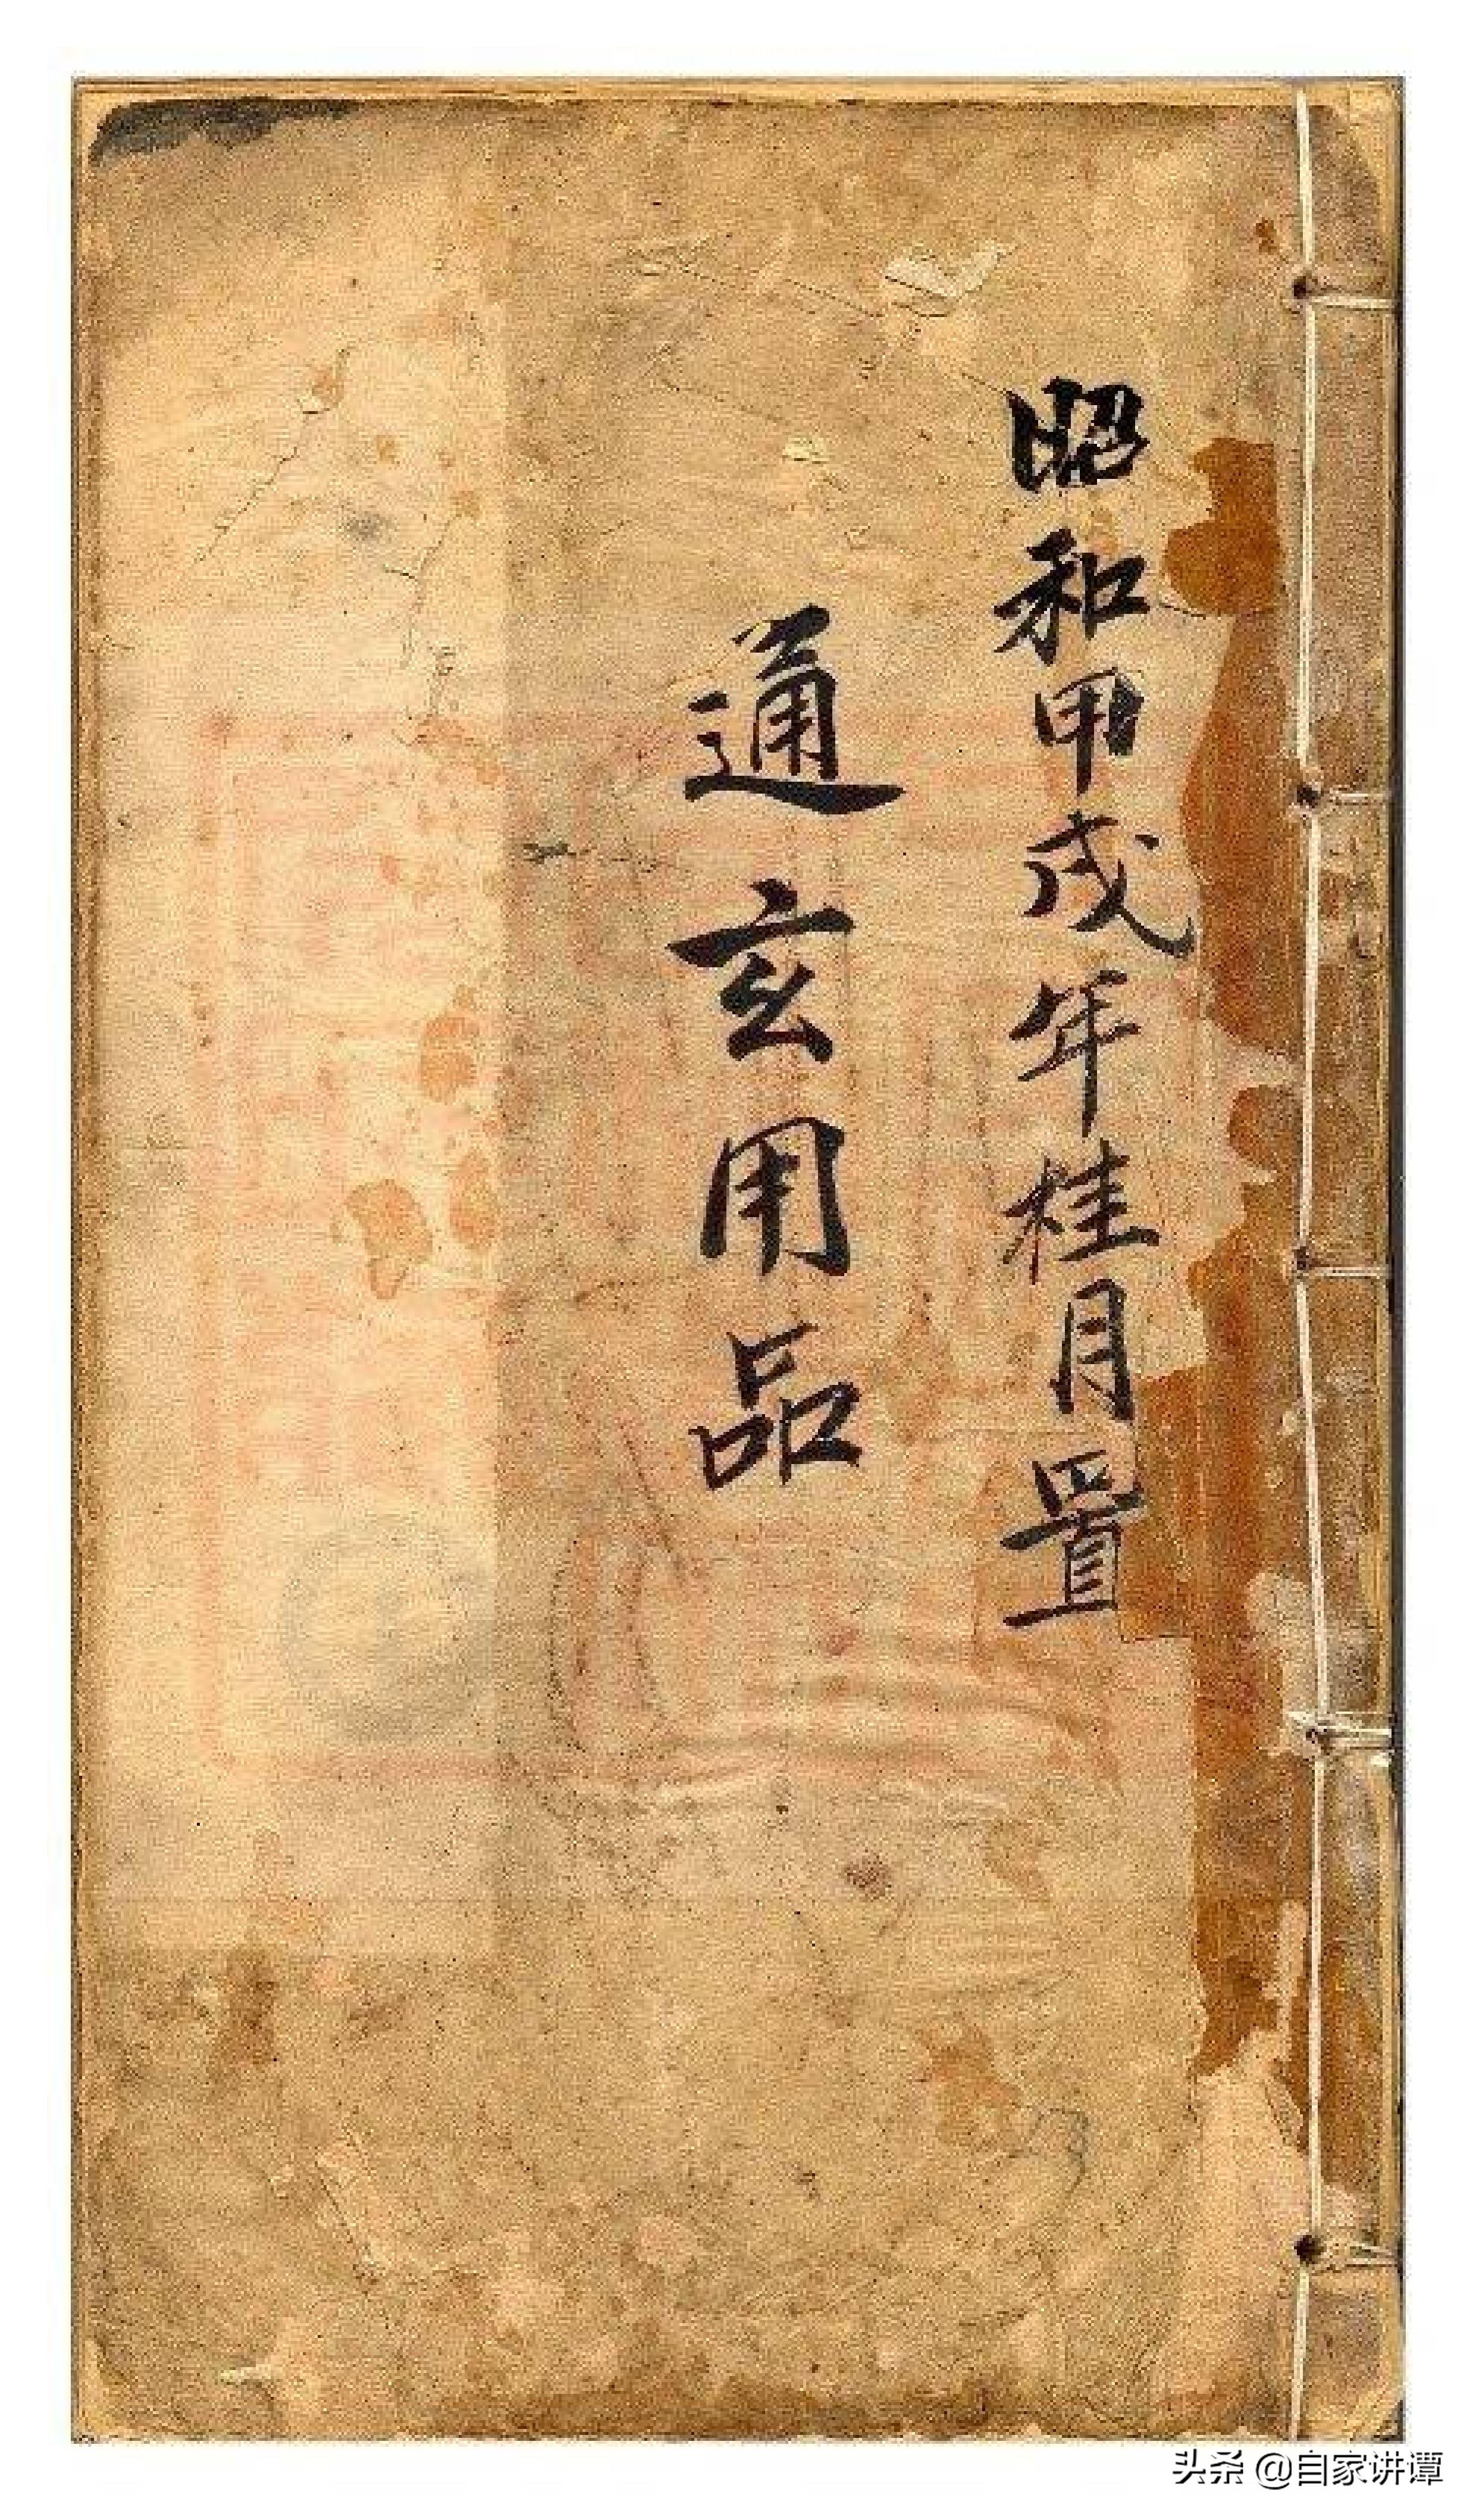 昭和甲戌年桂月置
通玄用品
头条 @自家讲谭